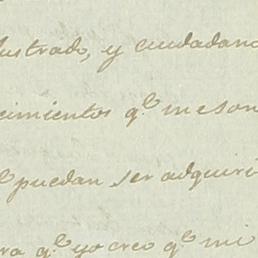 lustrado, y ciudadano
cimientos q.e me son
e puedan ser adquiri
ra q.e yo creo q.e mi